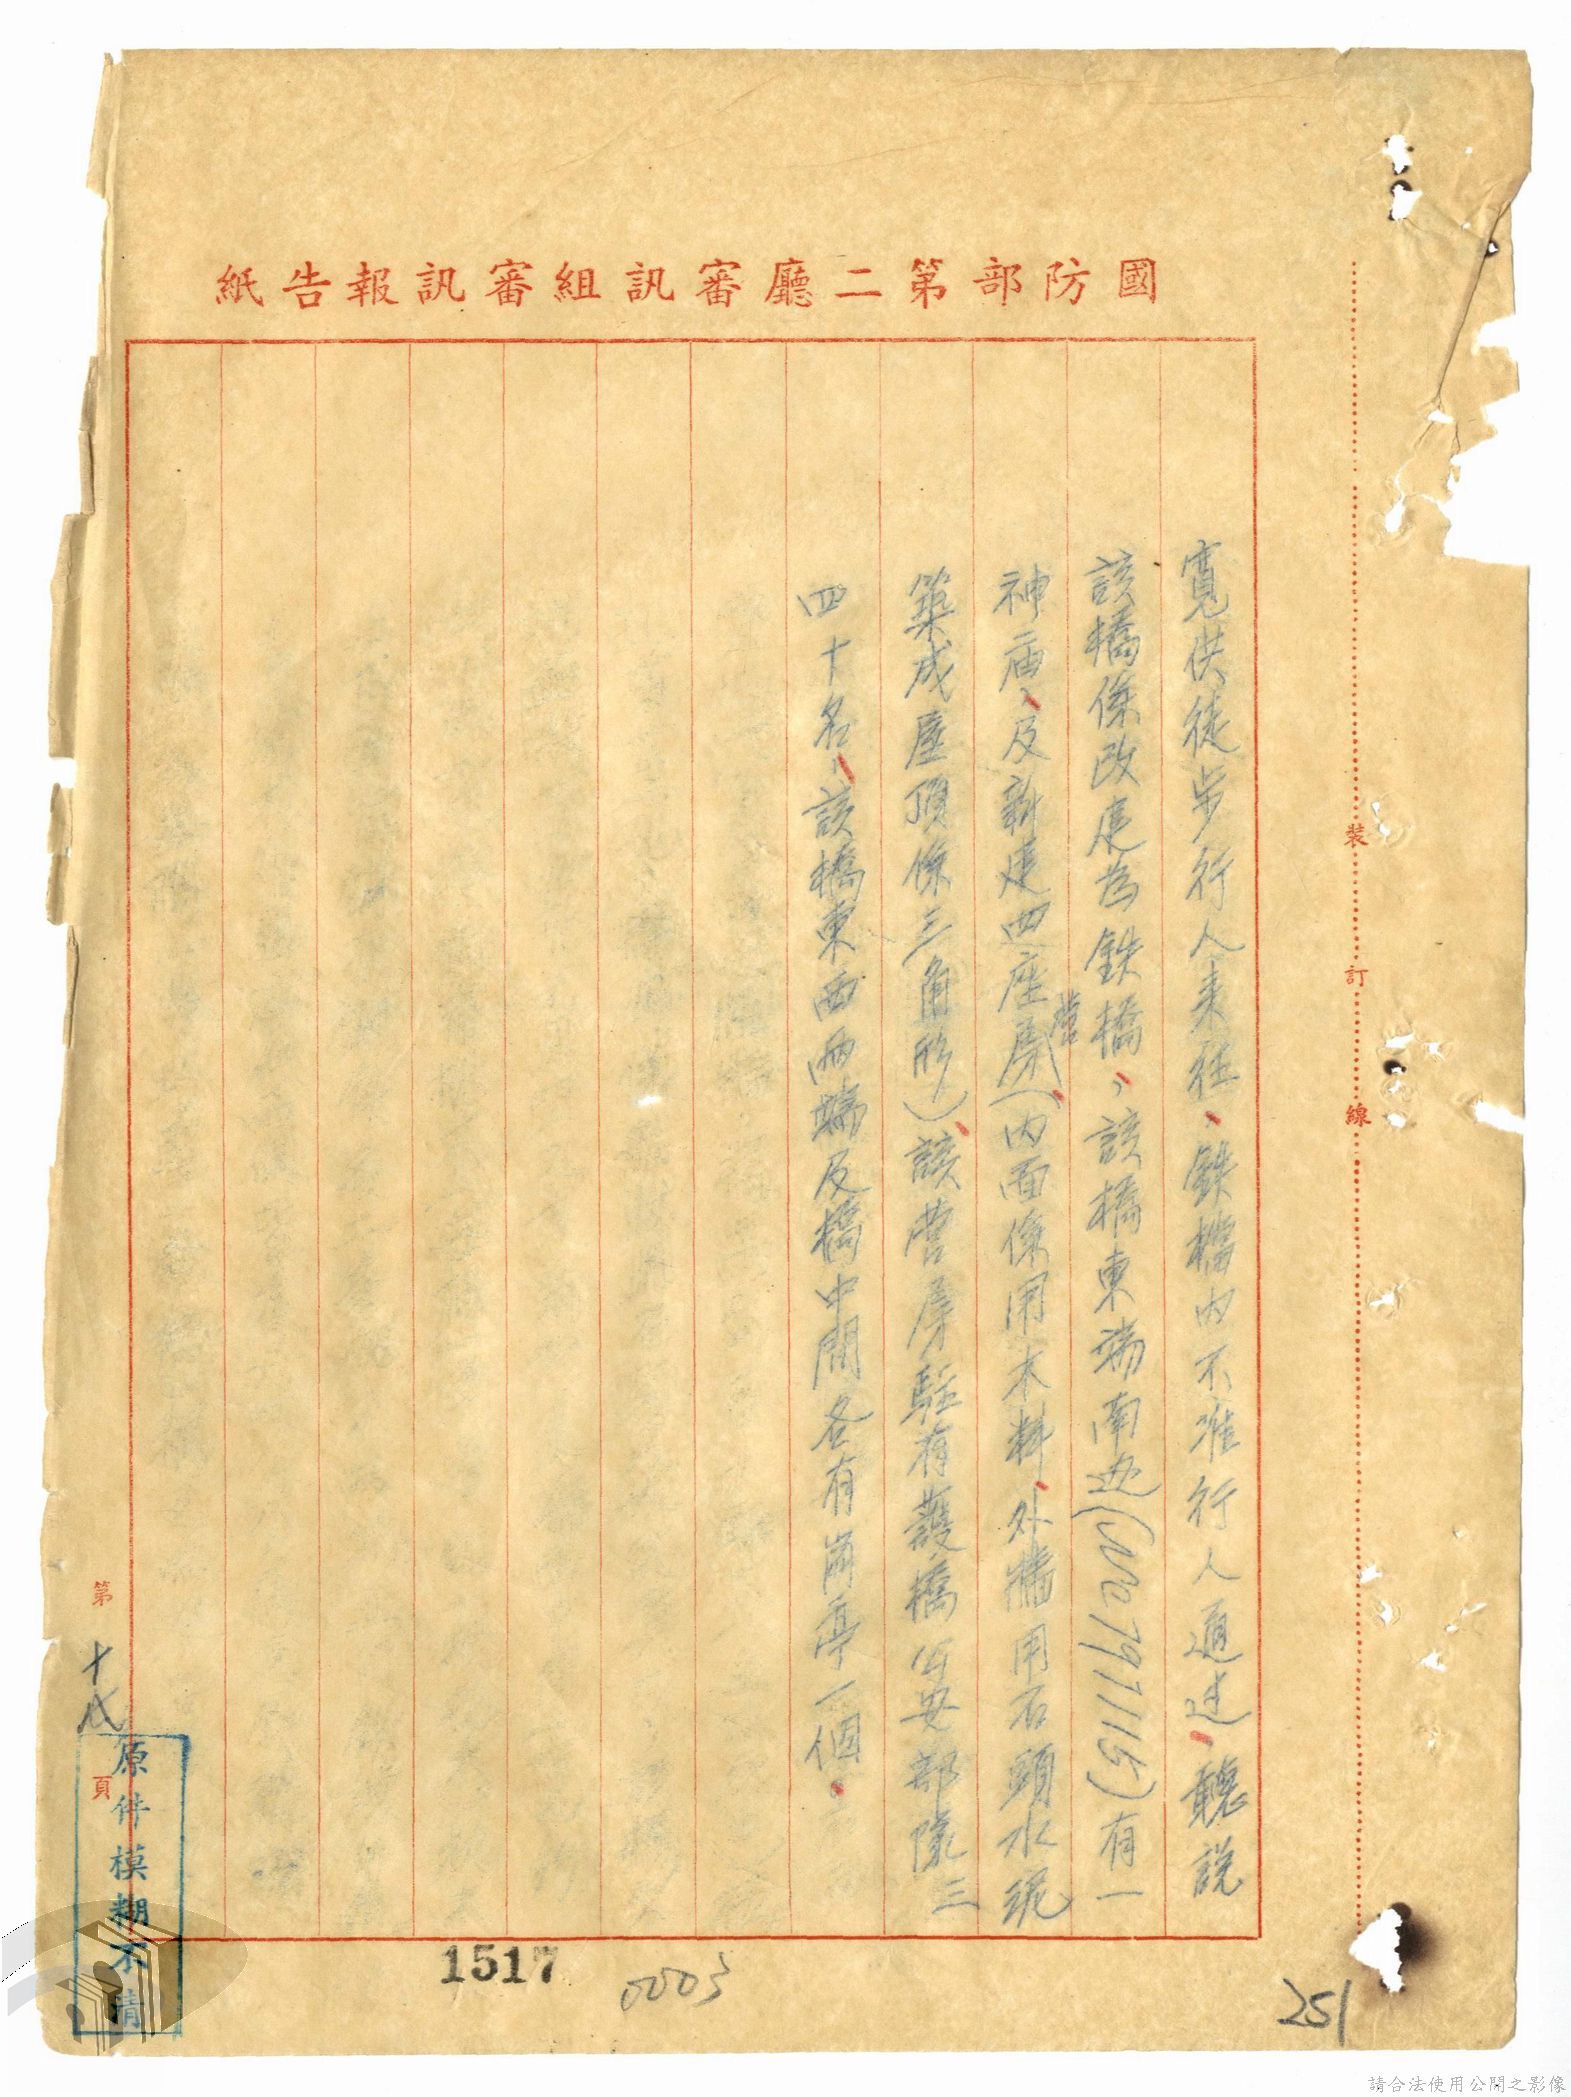 國防部第二廳審訊組審訊報告紙
寬供徒步行人來往、鉄檔內不准行人通过、聽説
該橋係改建為鉄橋、該橋東端南边(UC797115)有一
神庙、及新建四座營房(內面係用木料、外牆用石頭水泥
築成屋頂係三角形)、該營房駐有護橋公安部隊三
四十名、該橋東西兩端及橋中間各有崗亭一個。
裝
訂
線
第
頁
原件模糊不清
1517
0003
251
請合法使用公開之影像